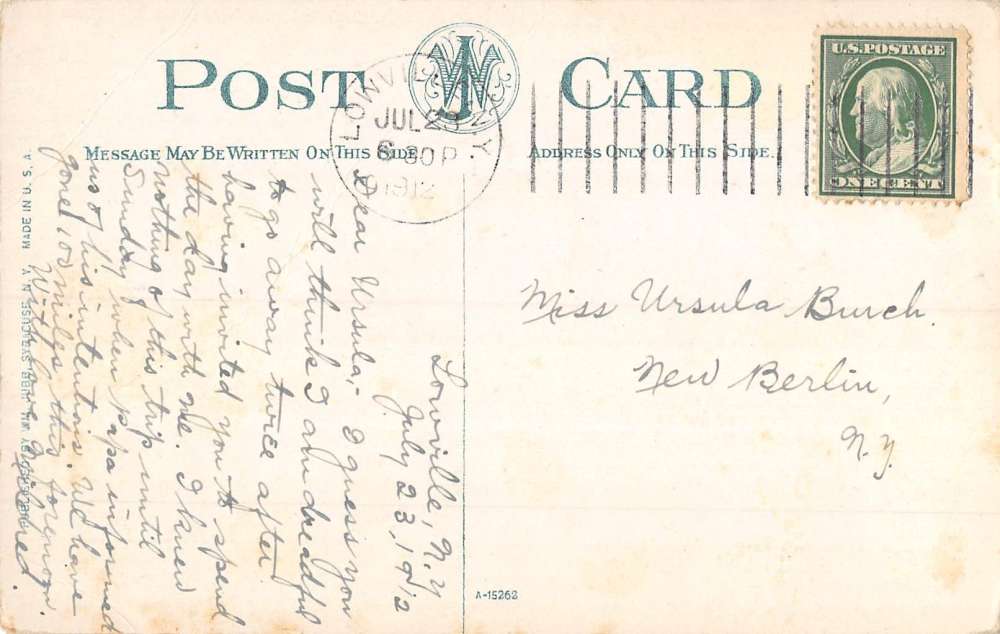 POST CARD
LOWVILLE N Y
JUL 23
6 30 P
1912
U.S. POSTAGE
ONE CENT
MESSAGE MAY BE WRITTEN ON THIS SIDE
ADDRESS ONLY ON THIS SIDE.
MADE IN U. S. A.
Lowville, N. Y
July 23, 1912
Dear Ursula;- I guess you
will think I am dreadful
to go away twice after
having invited you to spend
the day with me. I knew
nothing of this trip until
Sunday, when papa informed
us of his intentions. We have
gone 100 miles this forenoon.
With love
Miss Ursula Burch.
New Berlin,
N. Y.
A-15262